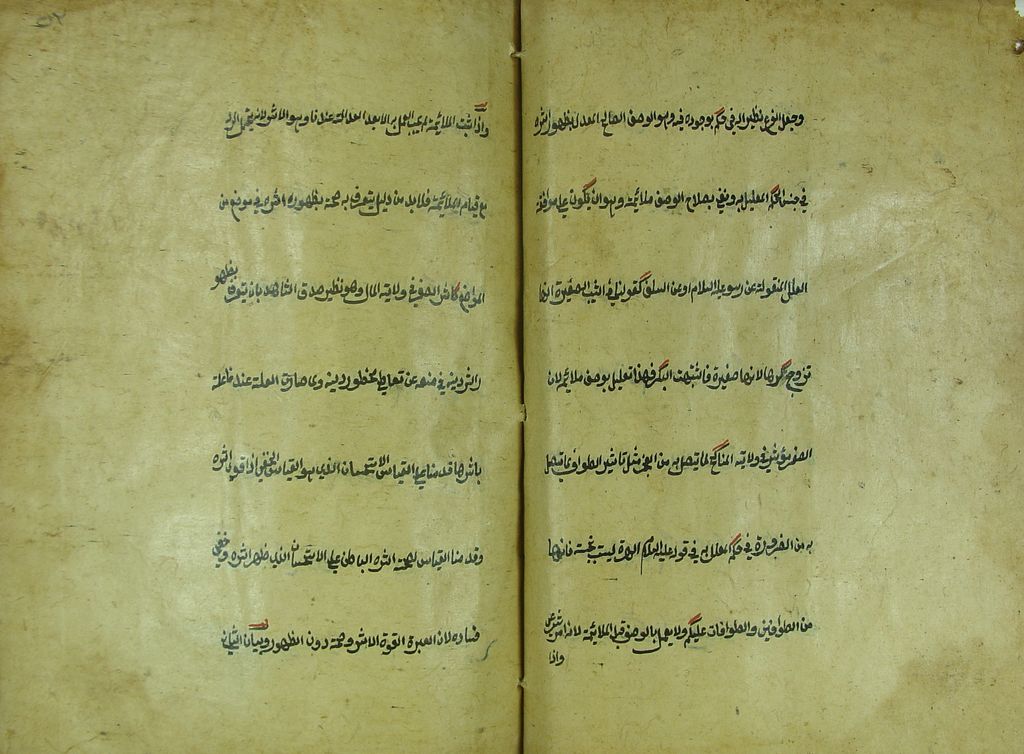 وجعل الفرع نظيرا له في حكمه بوجوده فيه وهو الوصف الصالح المعدل بظهور اثره
في جنس الحكم المعلل به ونعني بصلاح الوصف ملائمته وهو ان يكون على موافقة
العلل المنقولة عن رسول عليه السلام او عن السلف كقولنا في الثيب الصغيرة انها
تزوج كرها لانها صغيرة فاشبهت البكر فهذا تعليل بوصف ملائم لان
الصغر مؤثر في ولاية المناكح لما يتصل به من العجز مثل تاثير الطواف لما يتصل
به من الضرورة في الحكم المعلل به في قوله عليه السلام الهرة ليست بنجسة فانها
من الطوافين والطوافات عليكم ولا يعمل بالوصف قبل الملائمة لانه امر شرعي
واذا
واذا ثبت الملائمة لم يجب العمل به الا بعد العدالة عندنا وهو الاثر لانه يحتمل الرد
مع قيام الملائمة فلا بد من دليل يتعرف به صحته بظهور اثره في موضع من
المواضع كاثر الصغر في ولاية المال وهو نظير صدق الشاهد بانه يتعرف بظهور
اثر دينه في منعه عن تعاطي محظور دينه ولما صارت العلة عندنا علة
باثرها قدمنا على القياس الاستحسان الذي هو القياس الخفي اذا قوي اثره
وقدمنا القياس لصحة اثره الباطن على الاستحسان الذي ظهر اثره وخفي
فساده لان العبرة لقوة الاثر وصحته دون الظهور وبيان الثاني